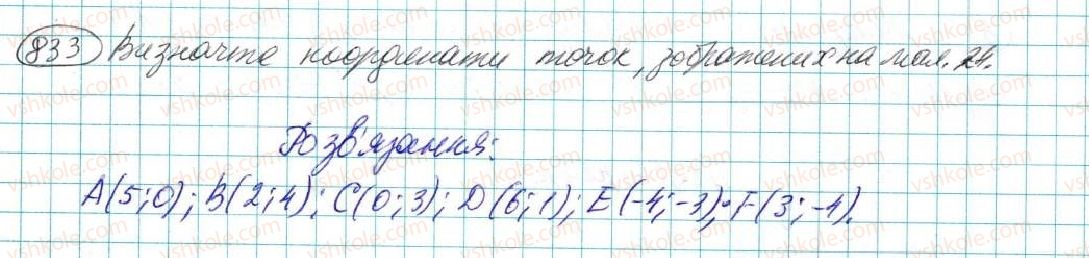 833 Визначте координати точок, зображених на мал. 24.
Розв'язання:
A(5;0); B(2;4); C(0;3); D(6;1); E(-4;-3); F(3;-4).